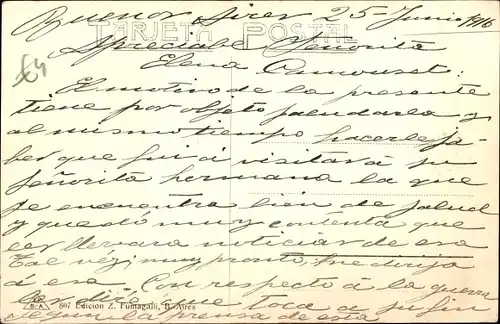 Buenos Aires 25-Junio 1916
TARJETA POSTAL
Apreciable Señorita
£4
Elena :
El motivo de la presente
tiene por objeto saludarla y
al mismo tiempo hacerle sa-
ber que fui á visitar á su
señorita hermana la que
se encuentra bien de salud
y quedó muy contenta que
le llevara noticias de esa
Tal vez muy pronto me dirija
á esa. Con respecto á la guerra
le diré que toca a su fin
Z. F. B. A. 807 Edición Z. Fumagalli, B. Aires
segun la prensa de esa